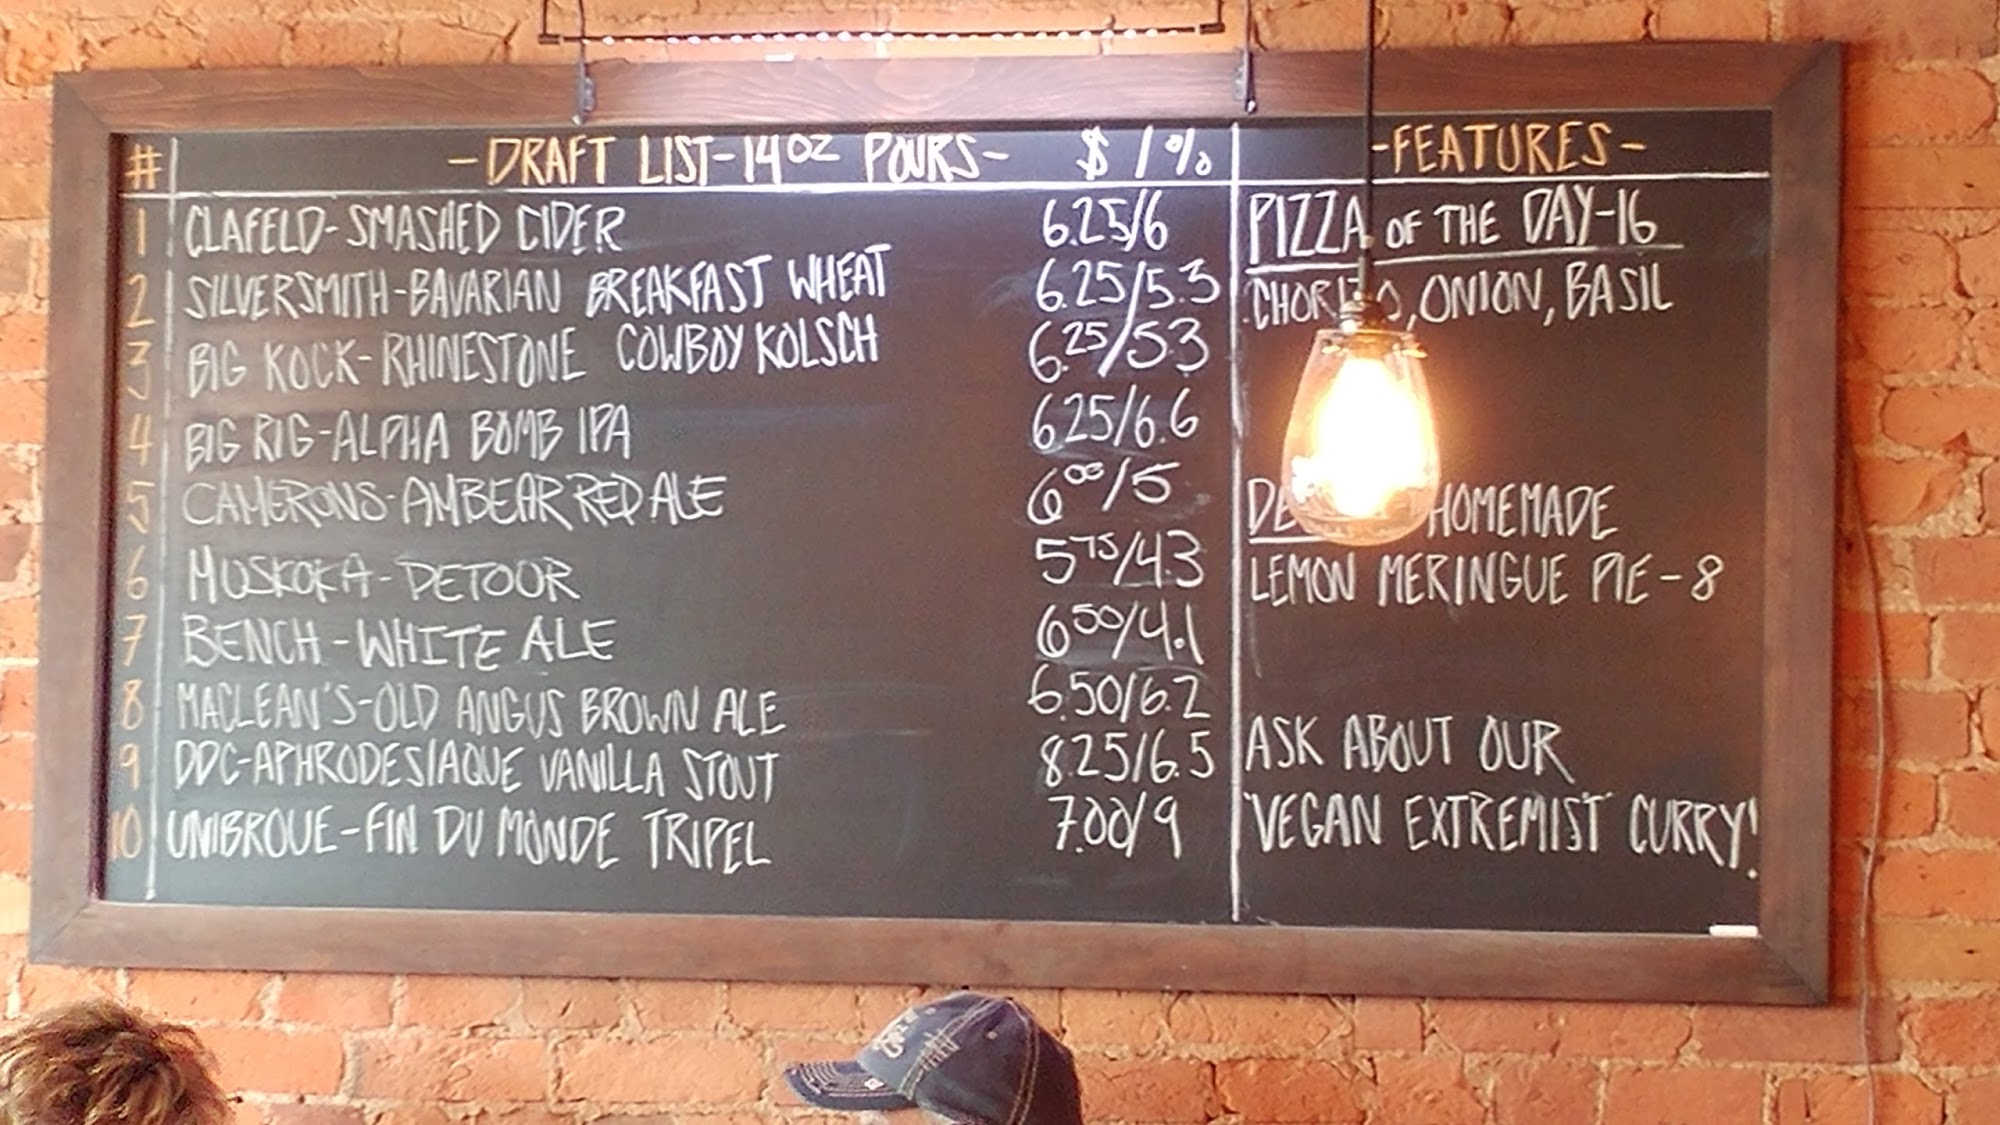 # -DRAFT LIST-14OZ POURS- $ / %
1 CLAFELD-SMASHED CIDER 6.25/6
2 SILVERSMITH-BAVARIAN BREAKFAST WHEAT 6.25/5.3
3 BIG KOCK-RHINESTONE COWBOY KOLSCH 6.25/5.3
4 BIG RIG-ALPHA BOMB IPA 6.25/6.6
5 CAMERONS-AMBEAR RED ALE 6.00/5
6 MUSKOKA-DETOUR 5.75/4.3
7 BENCH-WHITE ALE 6.50/4.1
8 MACLEAN'S-OLD ANGUS BROWN ALE 6.50/6.2
9 DDC-APHRODESIAQUE VANILLA STOUT 8.25/6.5
10 UNIBROUE-FIN DU MONDE TRIPEL 7.00/9
-FEATURES-
PIZZA OF THE DAY-16
CHORIZO, ONION, BASIL
HOMEMADE
LEMON MERINGUE PIE-8
ASK ABOUT OUR
"VEGAN EXTREMIST" CURRY!